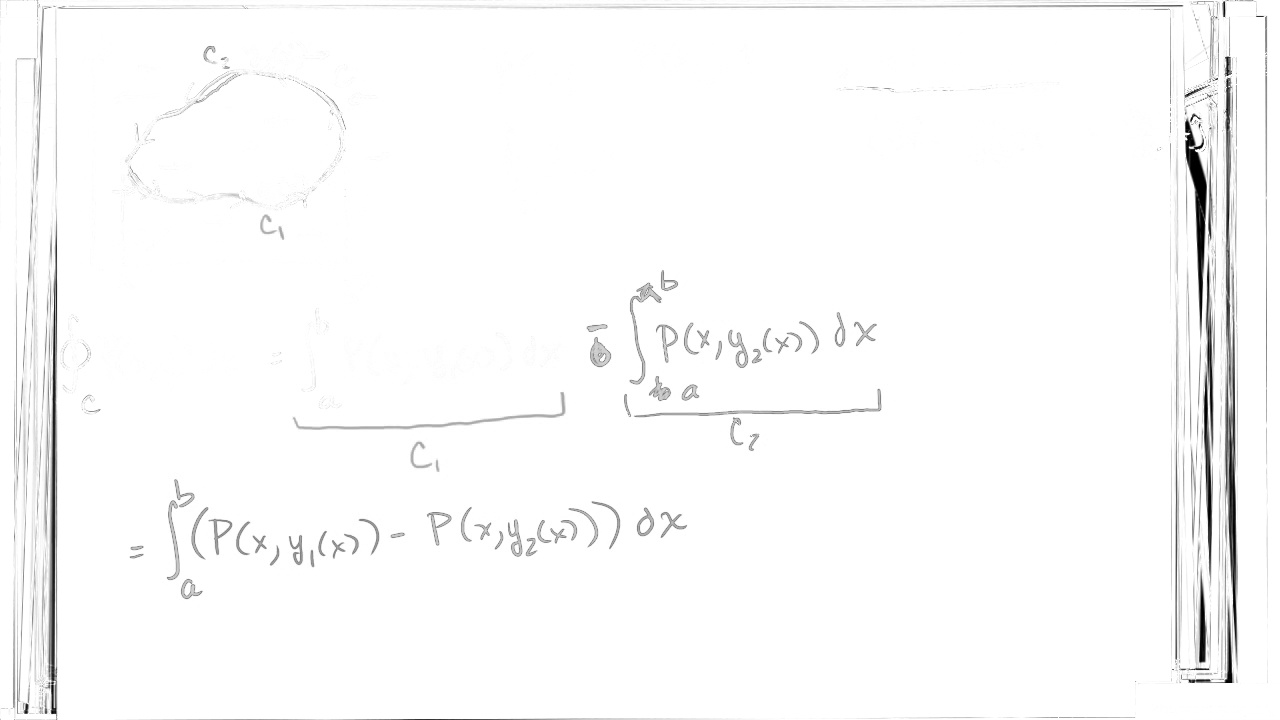 C₂
C₁
C = ∫ₐᵇ dx - ∫ₐᵇ P(x, y₂(x)) dx
C₁ C₂
= ∫ₐᵇ (P(x, y₁(x)) - P(x, y₂(x))) dx